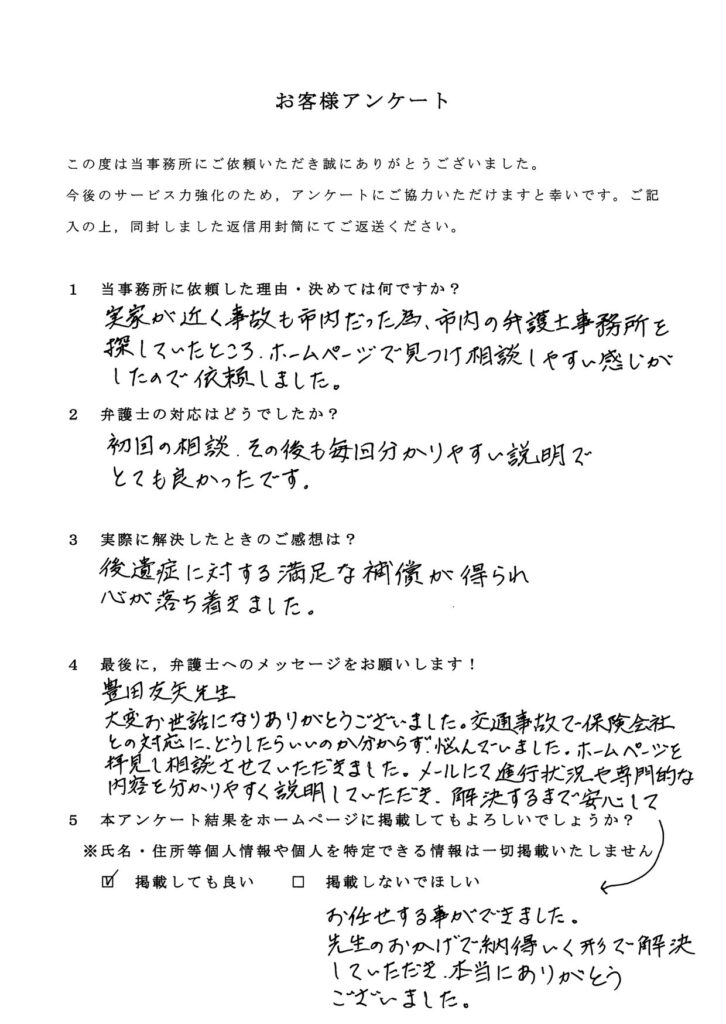 お客様アンケート
この度は当事務所にご依頼いただき誠にありがとうございました。
今後のサービス力強化のため，アンケートにご協力いただけますと幸いです。ご記
入の上，同封しました返信用封筒にてご返送ください。
1　当事務所に依頼した理由・決めては何ですか？
実家が近く事故も市内だった為、市内の弁護士事務所を
探していたところ、ホームページで見つけ相談しやすい感じが
したので依頼しました。
2　弁護士の対応はどうでしたか？
初回の相談、その後も毎回分かりやすい説明で
とても良かったです。
3　実際に解決したときのご感想は？
後遺症に対する満足な補償が得られ
心が落ち着きました。
4　最後に，弁護士へのメッセージをお願いします！
豊田友矢先生
大変お世話になりありがとうございました。交通事故で保険会社
との対応に、どうしたらいいのか分からず、悩んでいました。ホームページを
拝見し相談させていただきました。メールにて進行状況や専門的な
内容を分かりやすく説明していただき、解決するまで安心して
5　本アンケート結果をホームページに掲載してもよろしいでしょうか？
※氏名・住所等個人情報や個人を特定できる情報は一切掲載いたしません
☑　掲載しても良い　□　掲載しないでほしい
お任せする事ができました。
先生のおかげで納得いく形で解決
していただき、本当にありがとう
ございました。